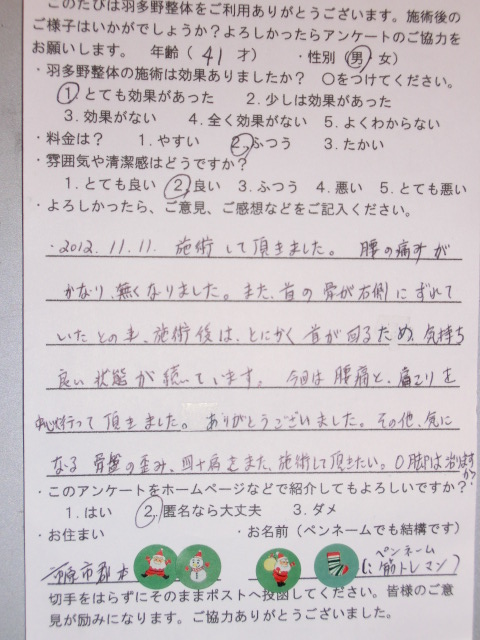 このたびは羽多野整体をご利用ありがとうございます。施術後の
ご様子はいかがでしょうか？よろしかったらアンケートのご協力を
お願いします。 年齢（ 41 才） ・性別（男・女）
・羽多野整体の施術は効果ありましたか？ ○をつけてください。
1. とても効果があった 2. 少しは効果があった
3. 効果がない 4. 全く効果がない 5. よくわからない
・料金は？ 1. やすい 2. ふつう 3. たかい
・雰囲気や清潔感はどうですか？
1. とても良い 2. 良い 3. ふつう 4. 悪い 5. とても悪い
・よろしかったら、ご意見、ご感想などをご記入ください。
・2012. 11. 11. 施術して頂きました。 腰の痛みが
かなり、無くなりました。また、首の骨が右側にずれて
いたとの事、施術後は、とにかく首が回るため、気持ち
良い状態が続いています。 今回は腰痛と、肩こりを
行って頂きました。ありがとうございました。その他、気に
なる骨盤の歪み、四十肩もまた、施術して頂きたい。O脚は治りますか？
・このアンケートをホームページなどで紹介してもよろしいですか？
1. はい 2. 匿名なら大丈夫 3. ダメ
・お住まい ・お名前（ペンネームでも結構です）
市郡 ペンネーム
筋トレマン）
切手をはらずにそのままポストへ投函してください。皆様のご意
見が励みになります。ご協力ありがとうございました。